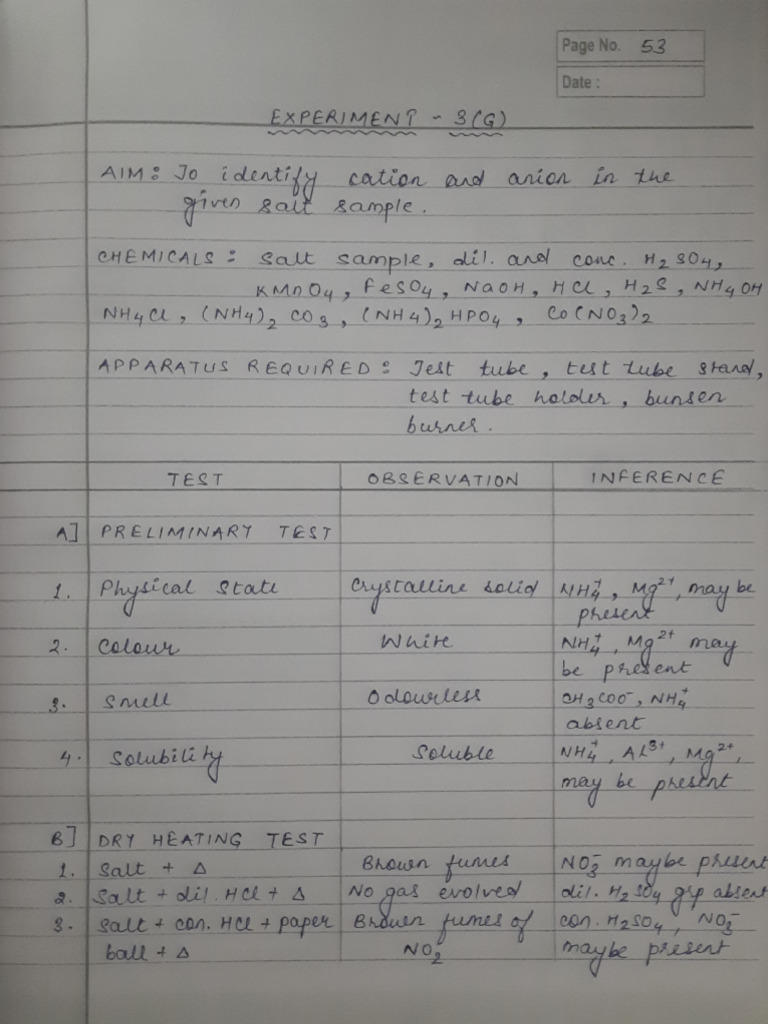 Page No. 53
Date :
EXPERIMENT - 3(G)
AIM: To identify cation and anion in the
given salt sample.
CHEMICALS: Salt sample, dil. and conc. H2SO4,
KMnO4, FeSO4, NaOH, HCl, H2S, NH4OH
NH4Cl, (NH4)2 CO3, (NH4)2HPO4, Co(NO3)2
APPARATUS REQUIRED: Test tube, test tube stand,
test tube holder, bunsen
burner.
TEST OBSERVATION INFERENCE
A] PRELIMINARY TEST
1. Physical State Crystalline solid NH4+, Mg2+, may be
present
2. Colour White NH4+, Mg2+ may
be present
3. Smell Odourless CH3COO-, NH4+
absent
4. Solubility Soluble NH4+, Al3+, Mg2+,
may be present
B] DRY HEATING TEST
1. Salt + Δ Brown fumes NO3- maybe present
2. Salt + dil. HCl + Δ No gas evolved dil. H2SO4 grp absent
3. Salt + con. HCl + paper Brown fumes of con. H2SO4, NO3-
ball + Δ NO2 maybe present